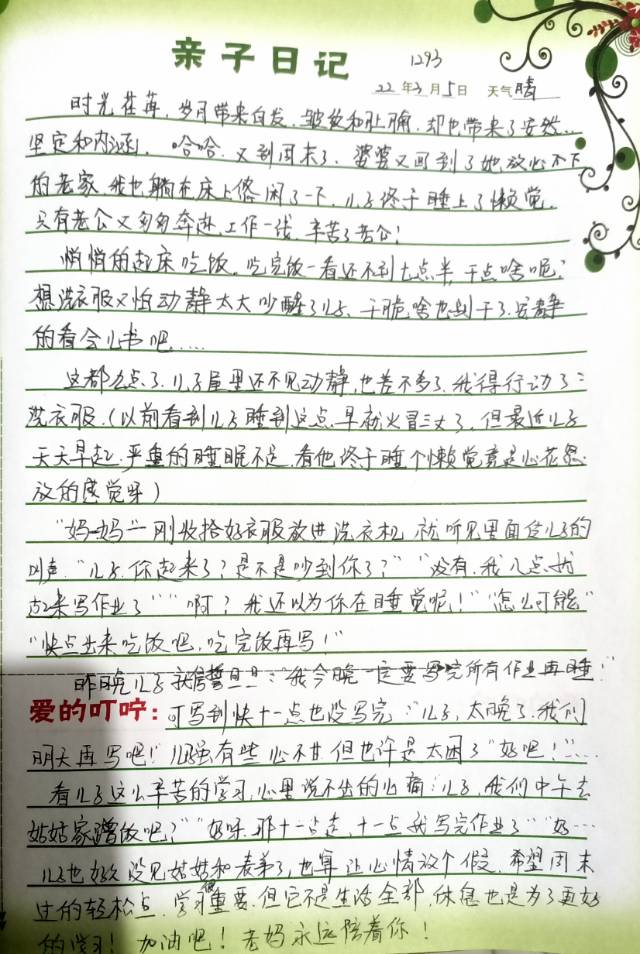 亲子日记 1293
22年3月5日 天气晴
时光荏苒,岁月带来白发、皱纹和肚腩,却也带来了安然、
坚定和内涵。哈哈,又到周末了,婆婆又回到了她放心不下
的老家,我也躺在床上悠闲了一下,儿子终于睡上了懒觉,
只有老公又匆匆奔赴工作一线,辛苦了老公!
悄悄的起床吃饭,吃完饭一看还不到七点半,干点啥呢?
想洗衣服又怕动静太大吵醒了儿子,干脆啥也别干了,安静
的看会儿书吧……
这都九点了,儿子屋里还不见动静,也差不多了,我得行动了:
洗衣服(以前看到儿子睡到这点,早就火冒三丈了,但最近儿子
天天早起,严重的睡眠不足,看他终于睡个懒觉竟是心花怒
放的感觉呀)
“妈—妈”一刚收拾好衣服放进洗衣机,就听见里面住儿子的
叫声,“儿子,你起来了?是不是吵到你了?”“没有,我八点就
起来写作业了”“啊?我还以为你在睡觉呢!”“怎么可能”
“快点出来吃饭吧,吃完饭再写!”
昨晚儿子就信誓旦旦:“我今晚一定要写完所有作业再睡!”
爱的叮咛:可写到快十一点也没写完:“儿子,太晚了,我们
明天再写吧!”儿子虽有些心不甘,但也许是太困了“好吧!”…
看儿子这么辛苦的学习,心里说不出的心痛:“儿子,我们中午去
姑姑家蹭饭吧?”“好呀,那十一点走,十一点我写完作业了”“好…
儿子也好久没见姑姑和表弟了,也算让心情放个假,希望周末
过的轻松点,学习很重要,但它不是生活全部,休息也是为了更好
的学习!加油吧!老妈永远陪着你!